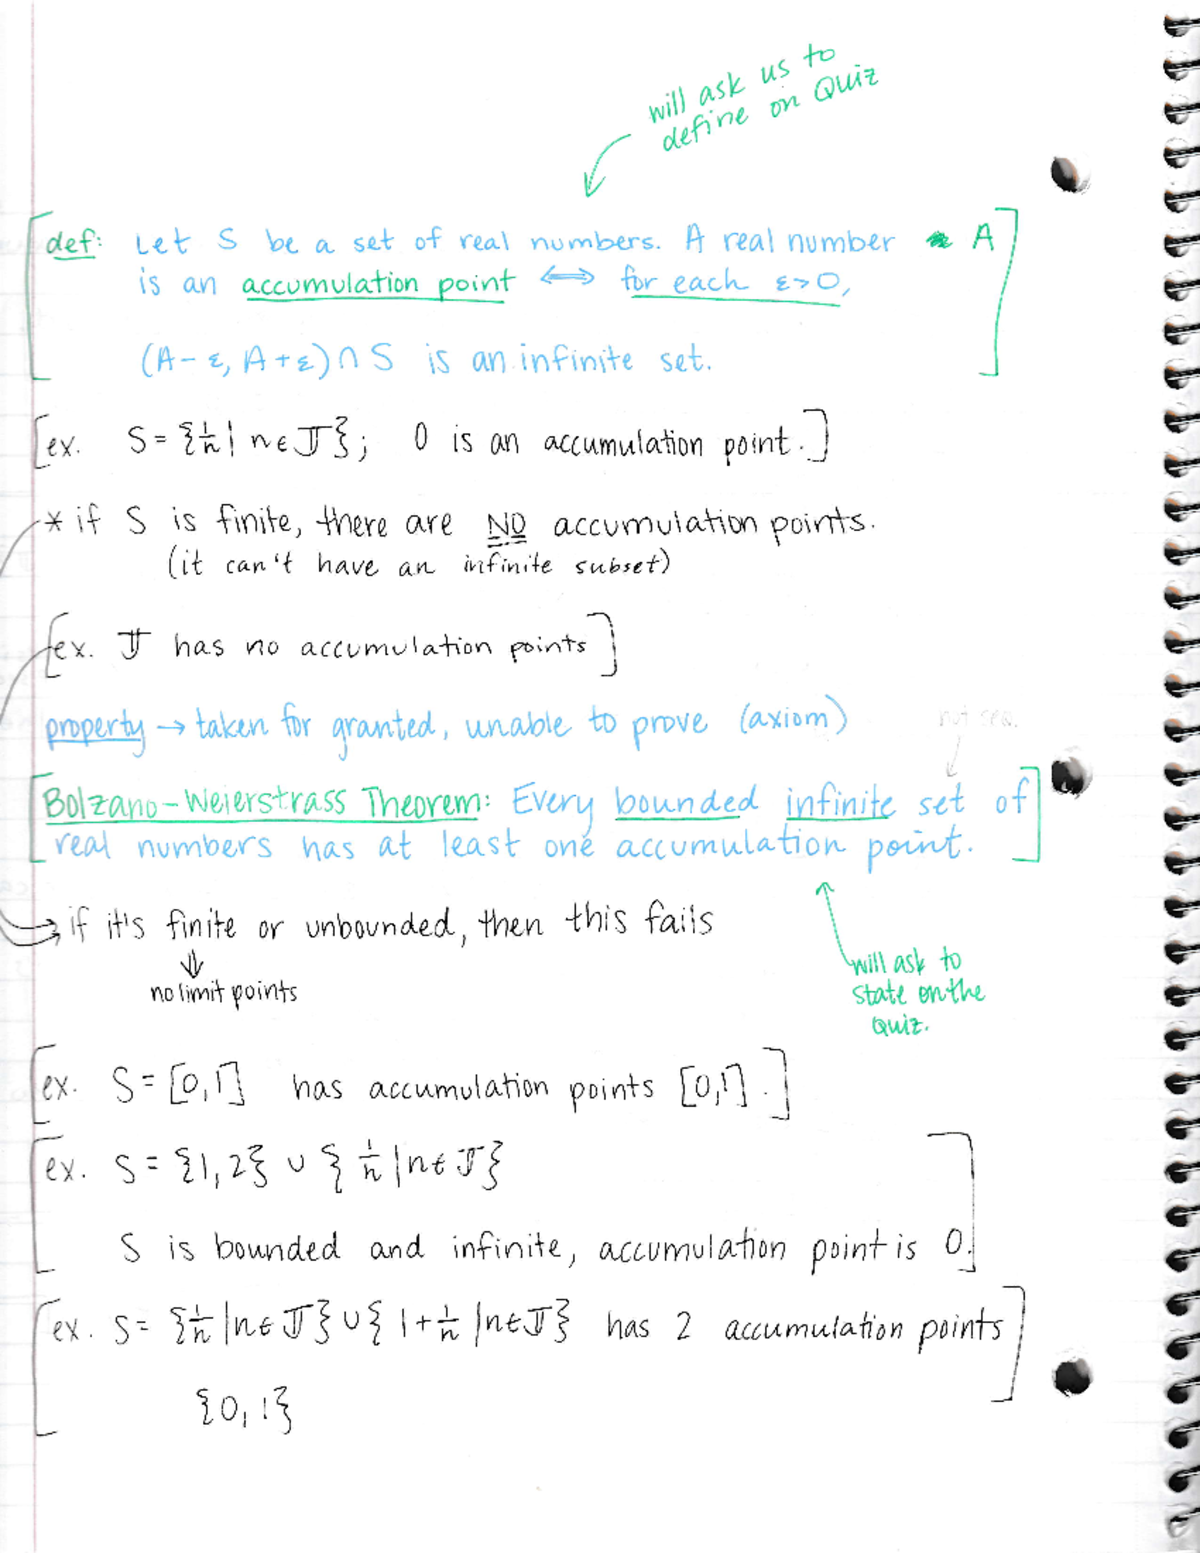 will ask us to
define on Quiz
def: Let S be a set of real numbers. A real number A
is an accumulation point ⟺ for each ε>0,
(A-ε, A+ε)∩S is an infinite set.
ex. S = {1/n | n∈𝕁}; 0 is an accumulation point.
* if S is finite, there are NO accumulation points.
(it can't have an infinite subset)
ex. 𝕁 has no accumulation points
property → taken for granted, unable to prove (axiom)
not seq.
Bolzano-Weierstrass Theorem: Every bounded infinite set of
real numbers has at least one accumulation point.
if it's finite or unbounded, then this fails
⇓
no limit points
will ask to
state on the
Quiz.
ex. S = [0,1] has accumulation points [0,1].
ex. S = {1,2} ∪ {1/n | n∈𝕁}
S is bounded and infinite, accumulation point is 0.
ex. S = {1/n | n∈𝕁} ∪ {1+1/n | n∈𝕁} has 2 accumulation points
{0,1}